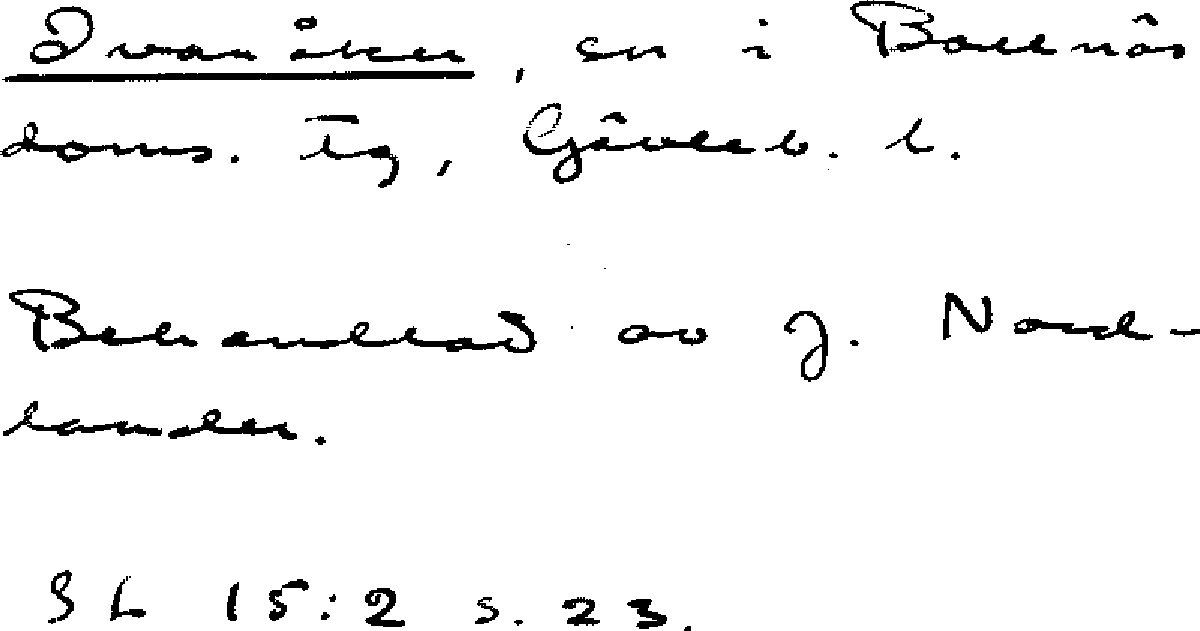 Ovanåker, sn i Bollnäs
doms. tg, Gävleb. l.
Behandlad av J. Nord-
lander.
SL 15:2 s. 23.